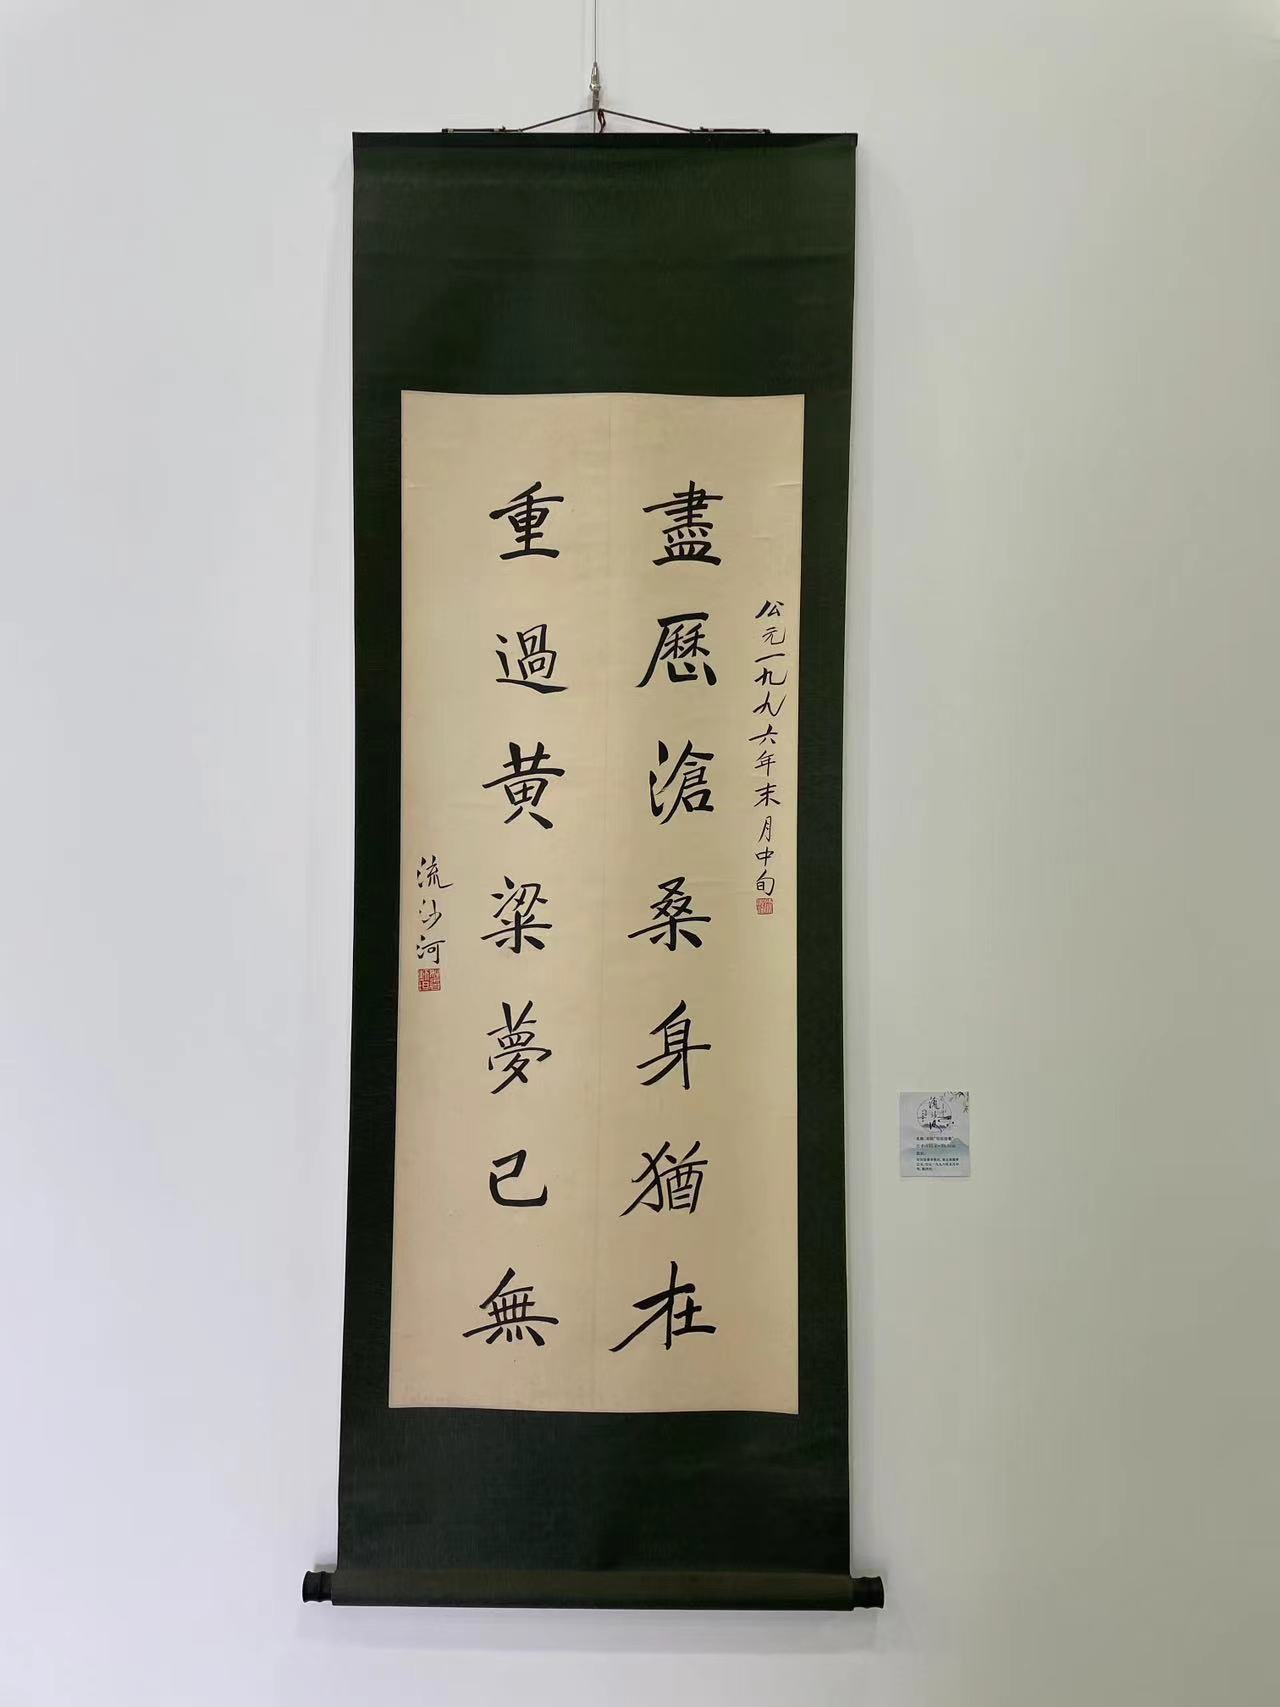 公元一九九六年末月中旬
盡歷滄桑身猶在
重過黄粱夢已無
流沙河
流沙河